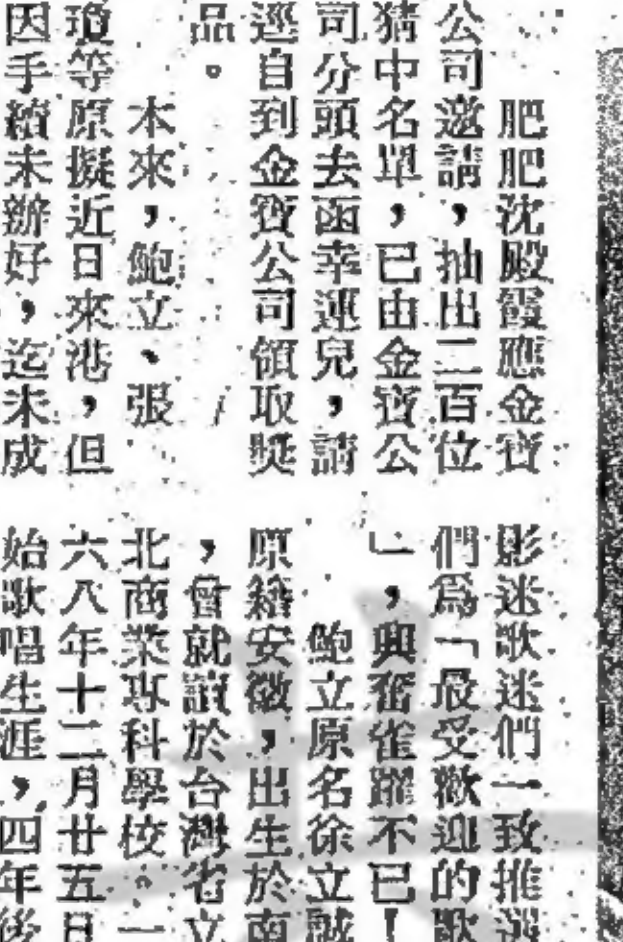 肥肥沈殿霞應金寶
公司邀請，抽出二百位
猜中名單，已由金寶公
司分頭去函幸運兒，請
逕自到金寶公司領取獎
品。
本來，鮑立、張
瓊等原擬近日來港，但
因手續未辦好，迄未成
影迷歌迷們一致推選
們為「最受歡迎的歌
」，興奮雀躍不已！
鮑立原名徐立誠
原籍安徽，出生於
，曾就讀於台灣省立
北商業專科學校。一
六八年十二月廿五日
始歌唱生涯，四年後